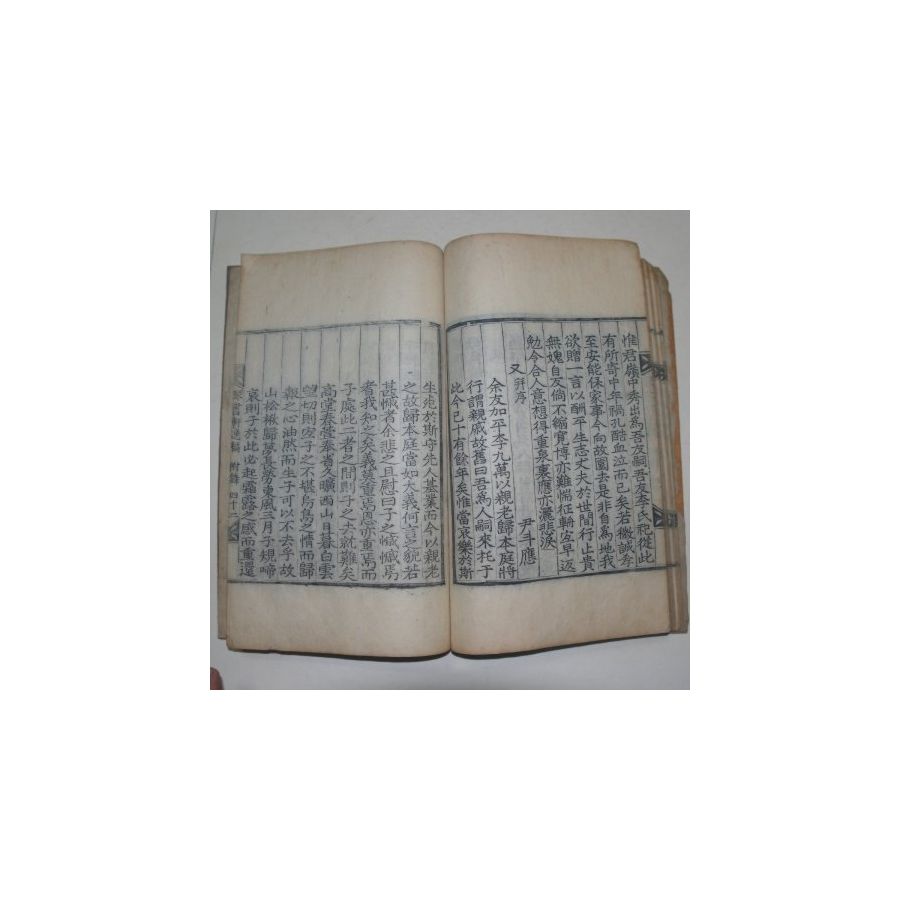 惟君嶺中秀出爲吾友嗣吾友李子兪從此
有所寄中年禍孔酷血泣而已矣若微誠孝
至安能保家事今向故園去是非自爲地我
欲贈一言以酬平生志丈夫於世間行止貴
無媿自友倘不縮寬博亦難惴征軿宜早返
勉今合人意想得重泉裏應亦灑悲淚
又 幷序 尹斗應
余友加平李九萬以親老歸本庭將
行謂親戚故舊曰吾爲人嗣來托于
此今已十有餘年矣惟當哀樂於斯
生死於斯守先人基業而今以親老
之故歸本庭當如大義何言之貌若
甚慽者余悲之且慰曰子之慽慽焉
者我知之矣義莫重焉恩亦重焉而
子處此二者之間則子之去就難矣
高堂奉瑩奉省久曠西山日暮白雲
望切則宏子之不堪烏鳥之情而歸
報之心油然而生子可以不去乎故
山松楸歸夢長勞東風三月子規啼
哀則子於此必起霜露之感而重還
軒逸稿 附錄 四十二